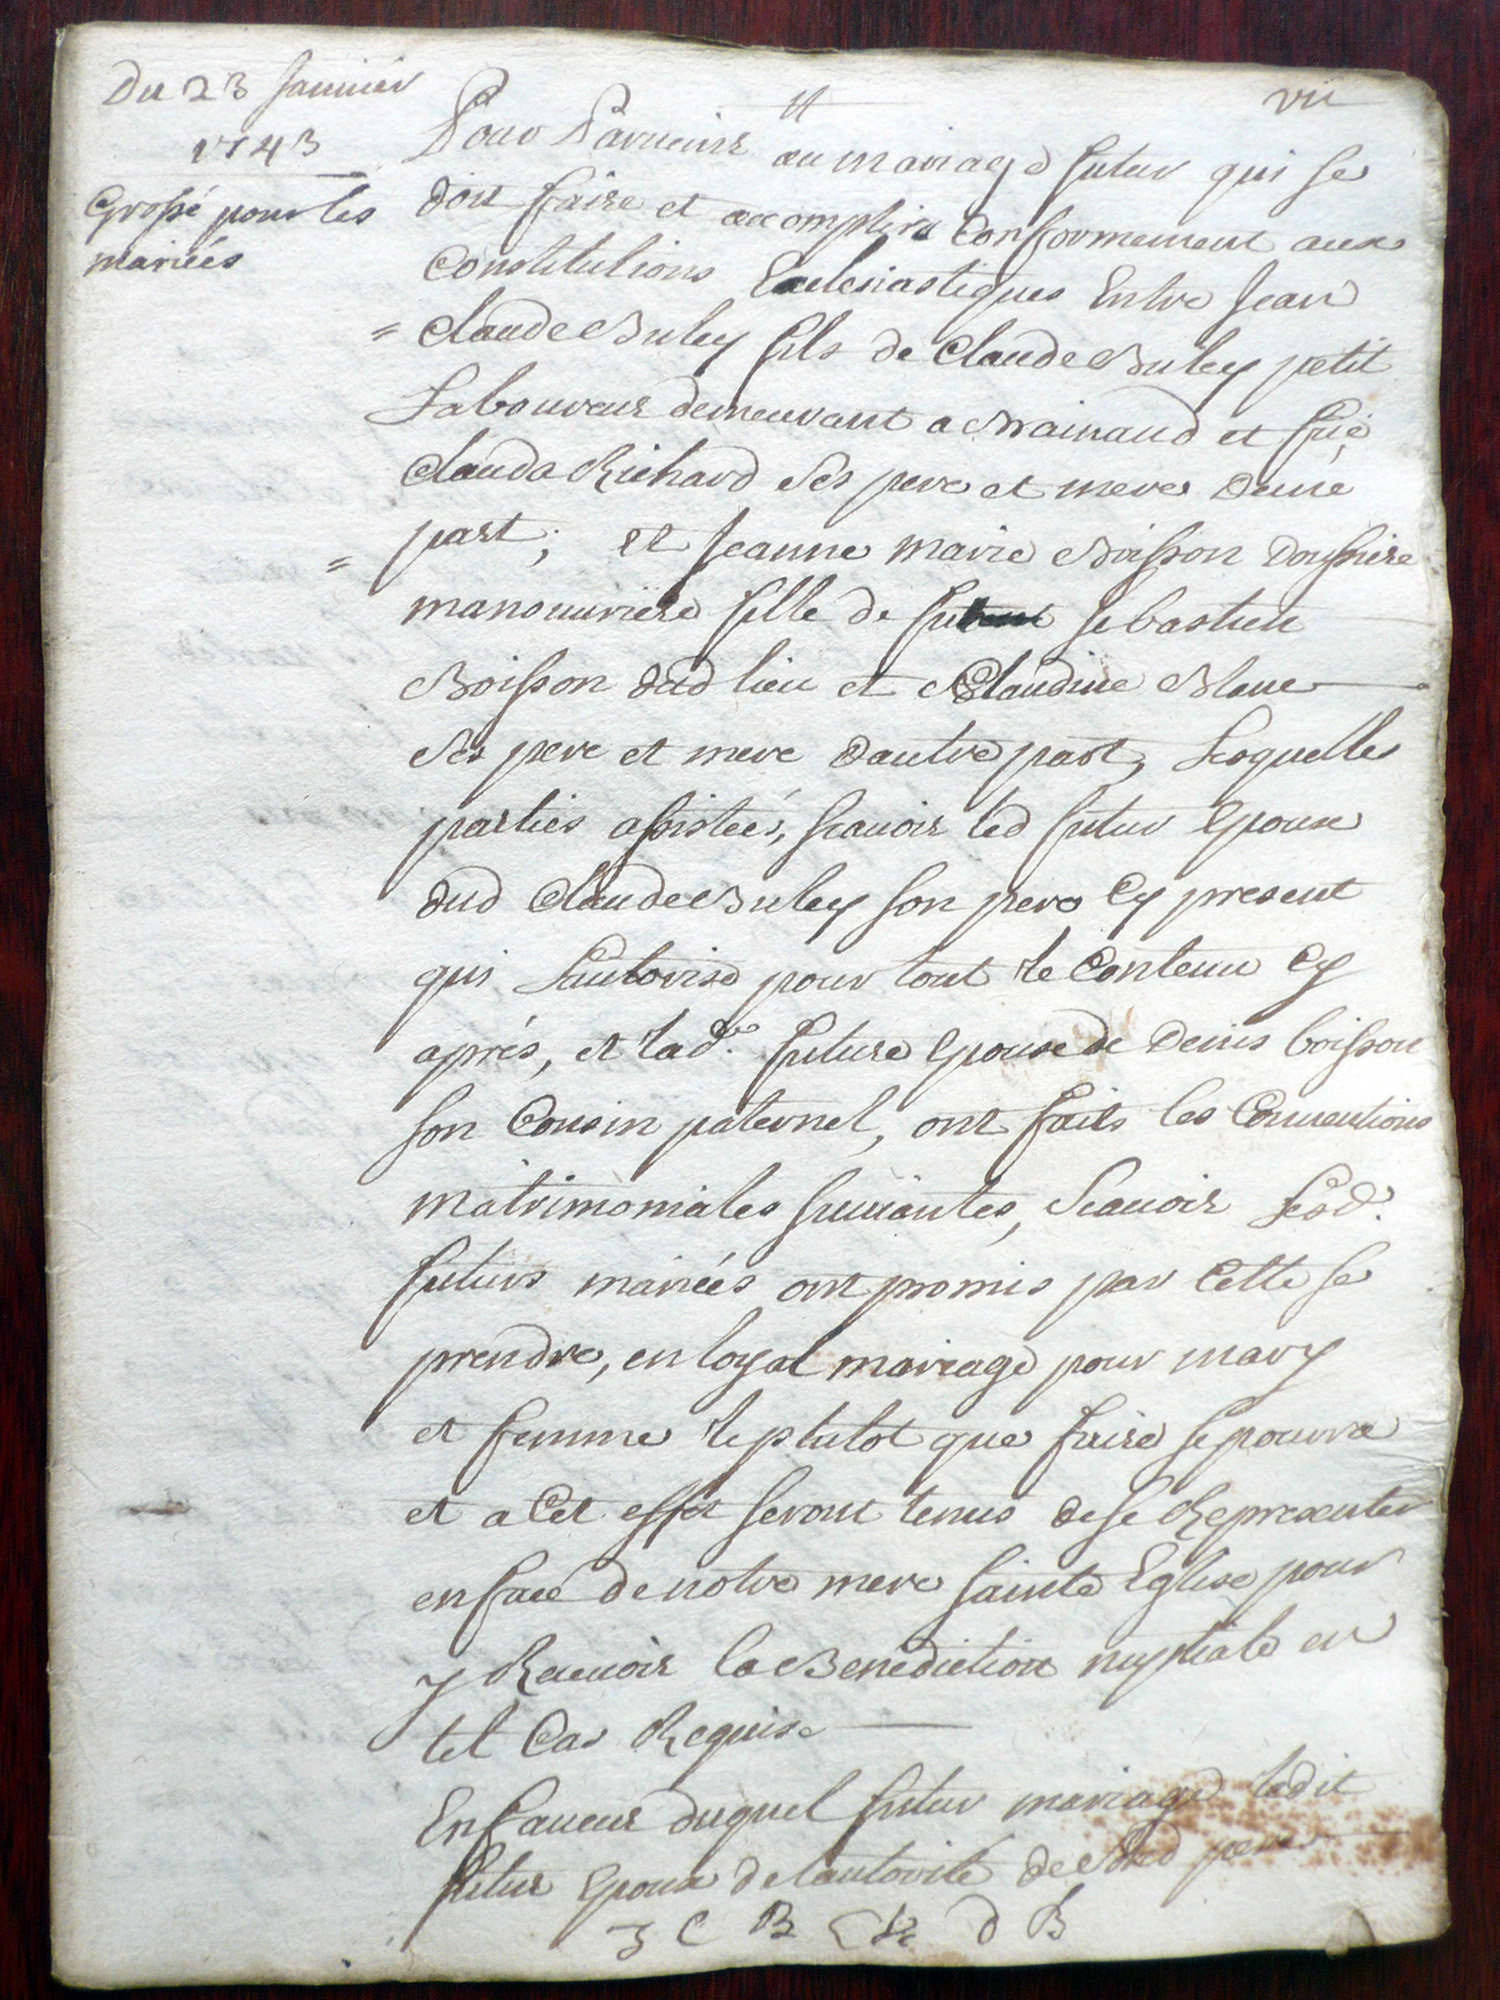 Du 23 Janvier
1743
Grossé pour les
mariées
vii
Pour Parvenir au mariage futur qui se
doit faire et accomplir Conformement aux
Constitutions Ecclesiastiques Entre Jean
= Claude Buley fils de Claude Buley petit
Laboureur demeurant a et fûe
Clauda Richard ses pere et mere Dune
= part; et Jeanne marie Boisson
manouvriere fille de fu Sebastien
Boisson dud lieu et Claudine Blanc
ses pere et mere dautre part, Lesquelles
parties assistées, scavoir led futur Epoux
dud Claude Buley son pere Cy present
qui Lautorise pour tout le Contenu Cy
aprés, et lad.e future Epouse de Denis boisson
son Cousin paternel, ont faits les Conventions
matrimoniales suivantes, Scavoir Lesd.
futurs mariées ont promis par Cette se
prendre, en loyal mariage pour mary
et femme le plutot que faire se pourra
et a Cet effet seront tenus de se Representer
en face de notre mere sainte Eglise pour
y Recevoir la Benediction nuptiale en
tel Cas Requise
En faveur duquel futur mariage ledit
futur Epoux de lautorité de sond pere
J C B d B